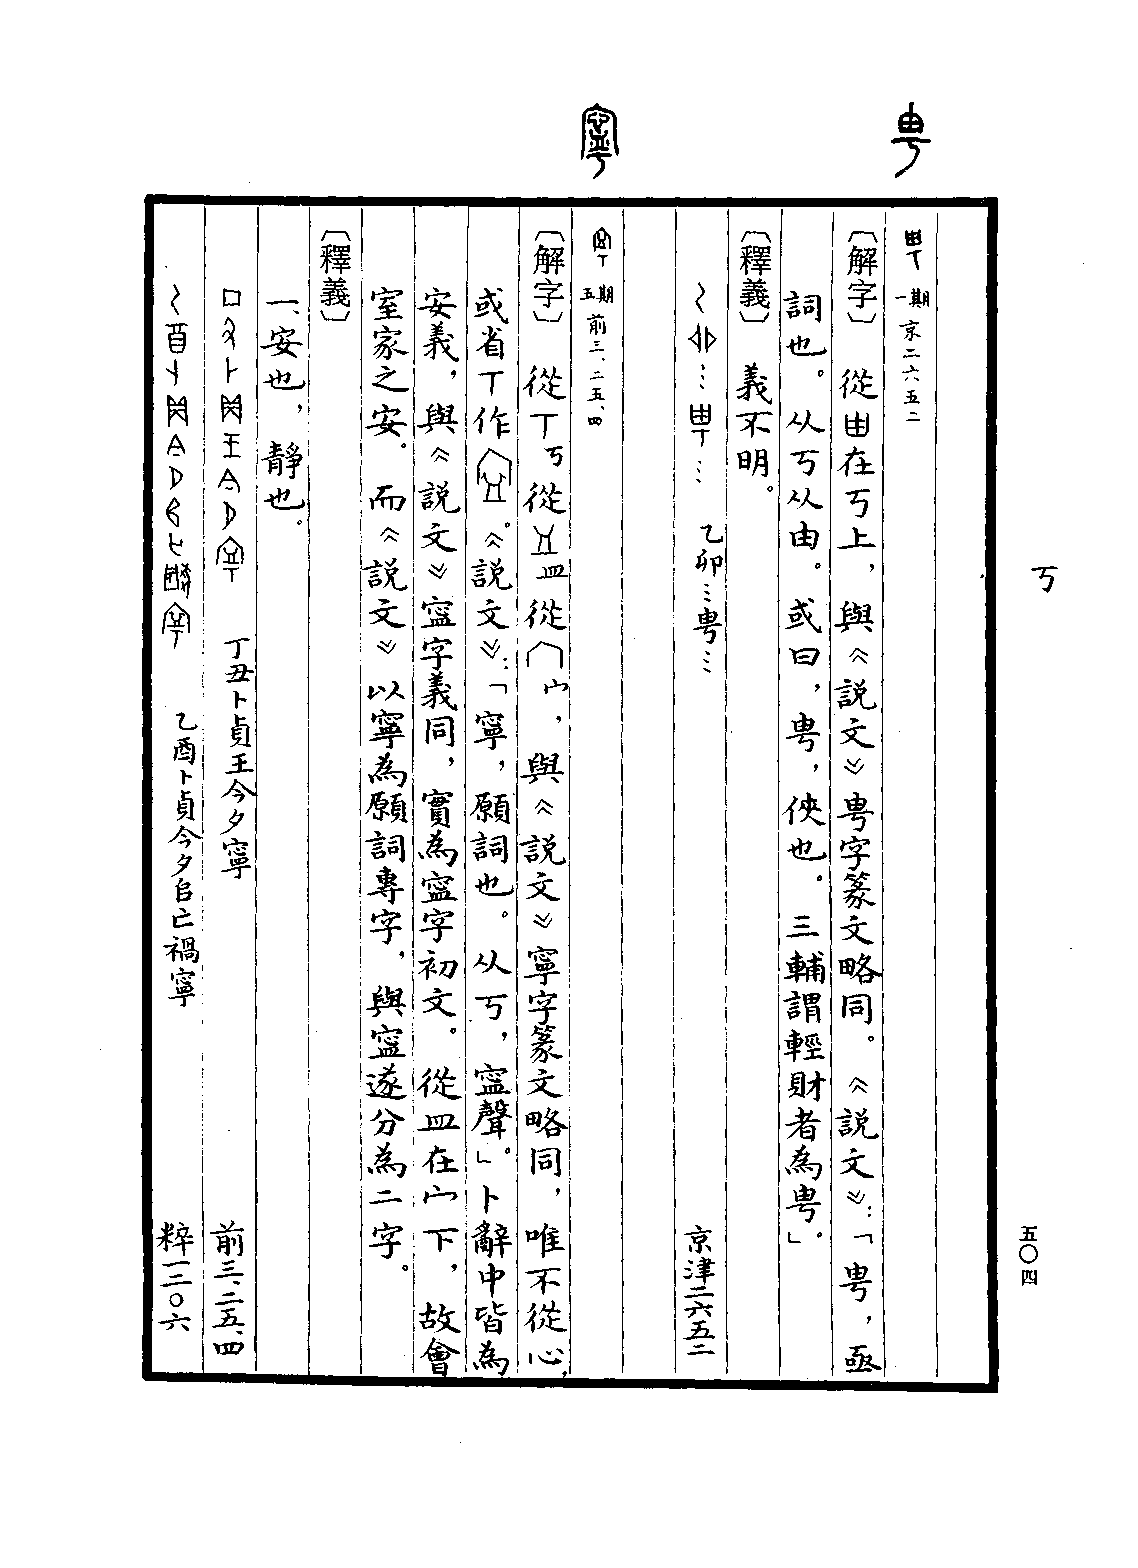 甹
一期 京二六五二
〔解字〕 從由在丂上，與《說文》甹字篆文略同。《說文》：「甹，亟
詞也。从丂从由。或曰，甹，俠也。三輔謂輕財者為甹」。
〔釋義〕 義不明。
乙卯…甹… 京津二六五二
寧
五期 前三、二五、四
〔解字〕 從丂從皿從宀，與《說文》寧字篆文略同，唯不從心，
或省丅作。《說文》：「寧，願詞也。从丂，寍聲。」卜辭中皆為
安義，與《說文》寍字義同，實為寍字初文。從皿在宀下，故會
室家之安。而《說文》以寧為願詞專字，與寍遂分為二字。
〔釋義〕
一、安也，靜也。
丁丑卜貞王今夕寧 前三、二五、四
乙酉卜貞今夕𠂤亡禍寧 粹一二〇六
丂
五〇四